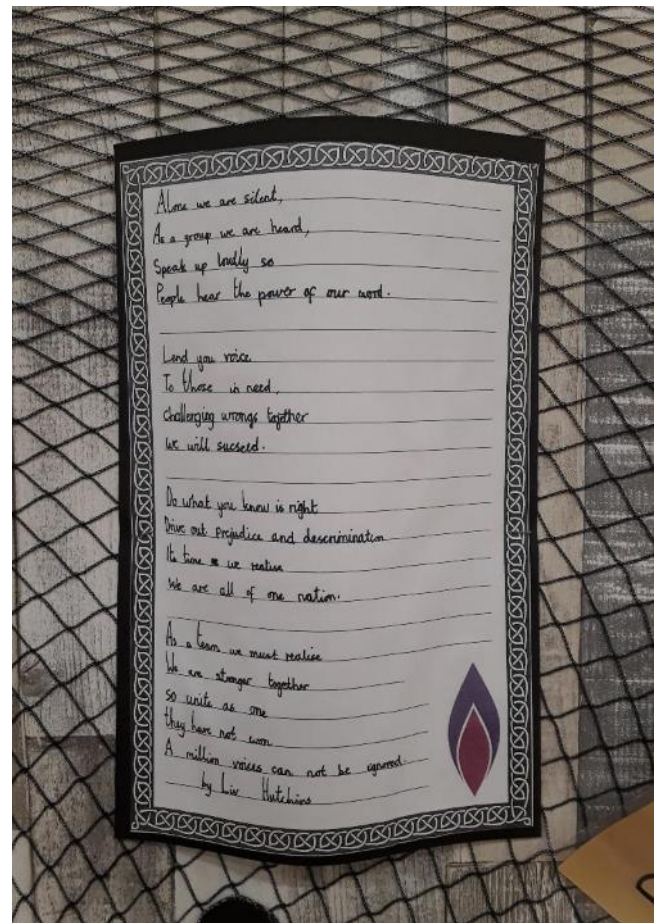 Alone we are silent,
As a group we are heard,
Speak up loudly so
People hear the power of our word.
Lend you voice
To those in need,
challenging wrongs together
we will sucseed.
Do what you know is right
Drive out prejudice and descrimination
Its time we realise
We are all of one nation.
As a team we must realise
We are stronger together
so unite as one
they have not won
A million voices can not be ignored.
by Liv Hutchins